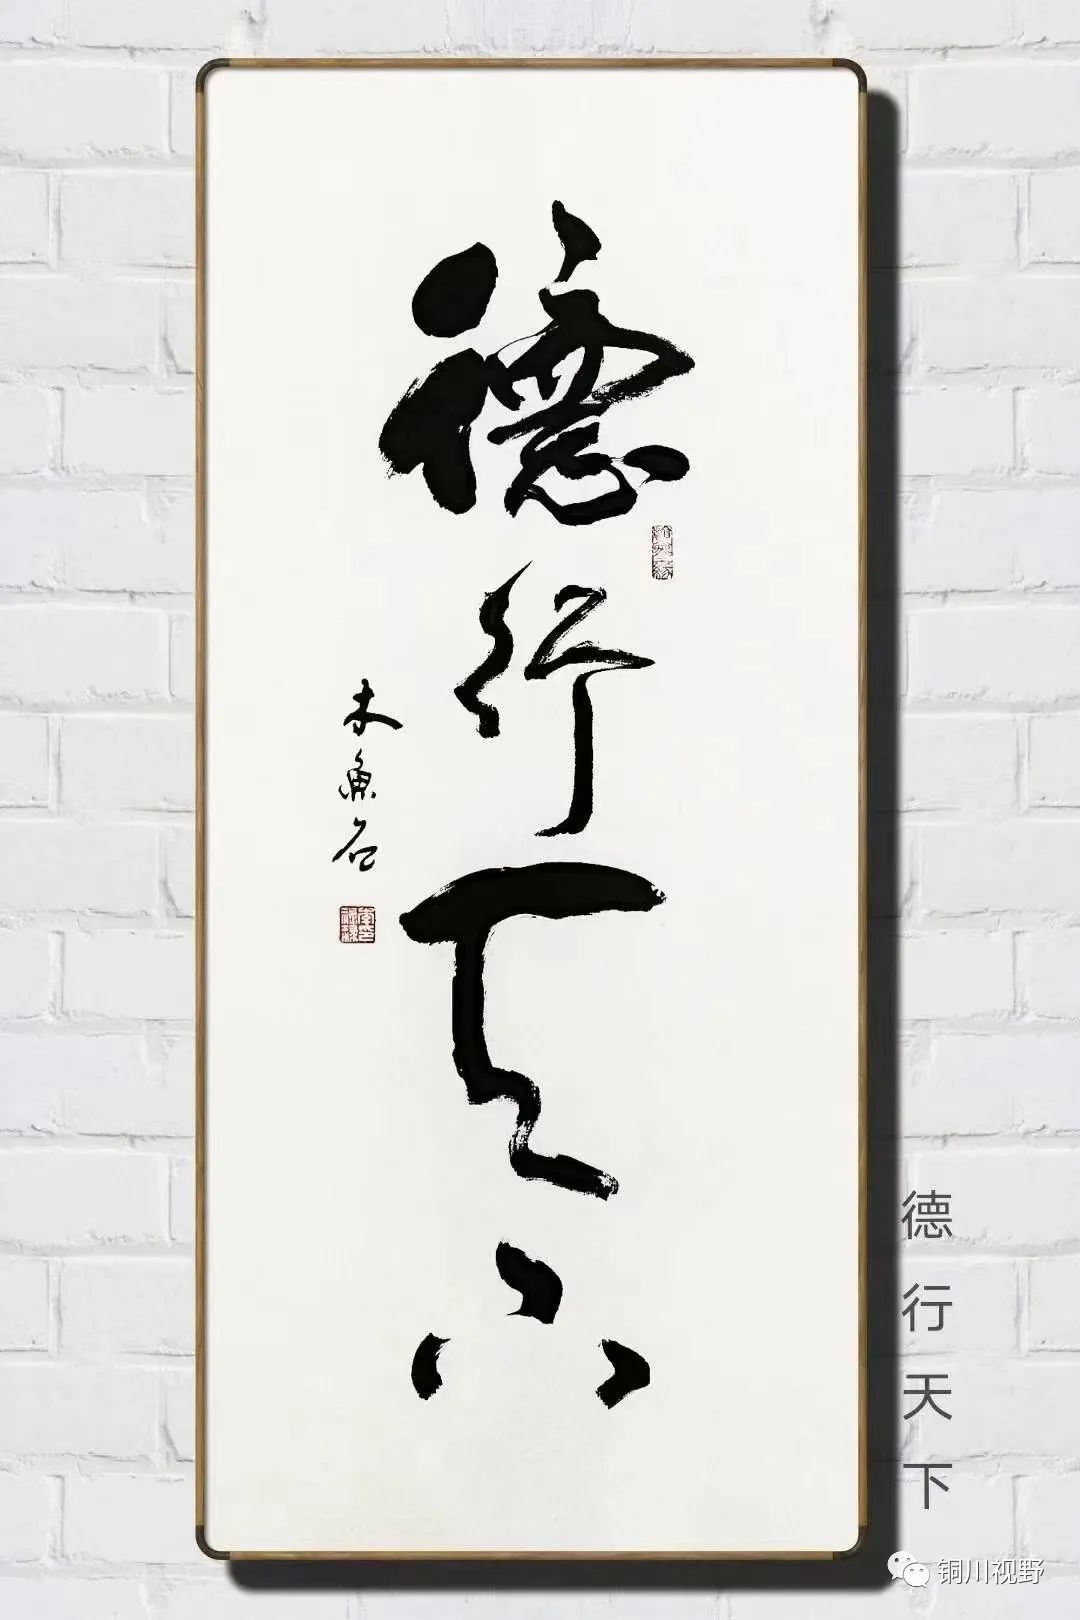 德行天下
木鱼石
德行天下
铜川视野